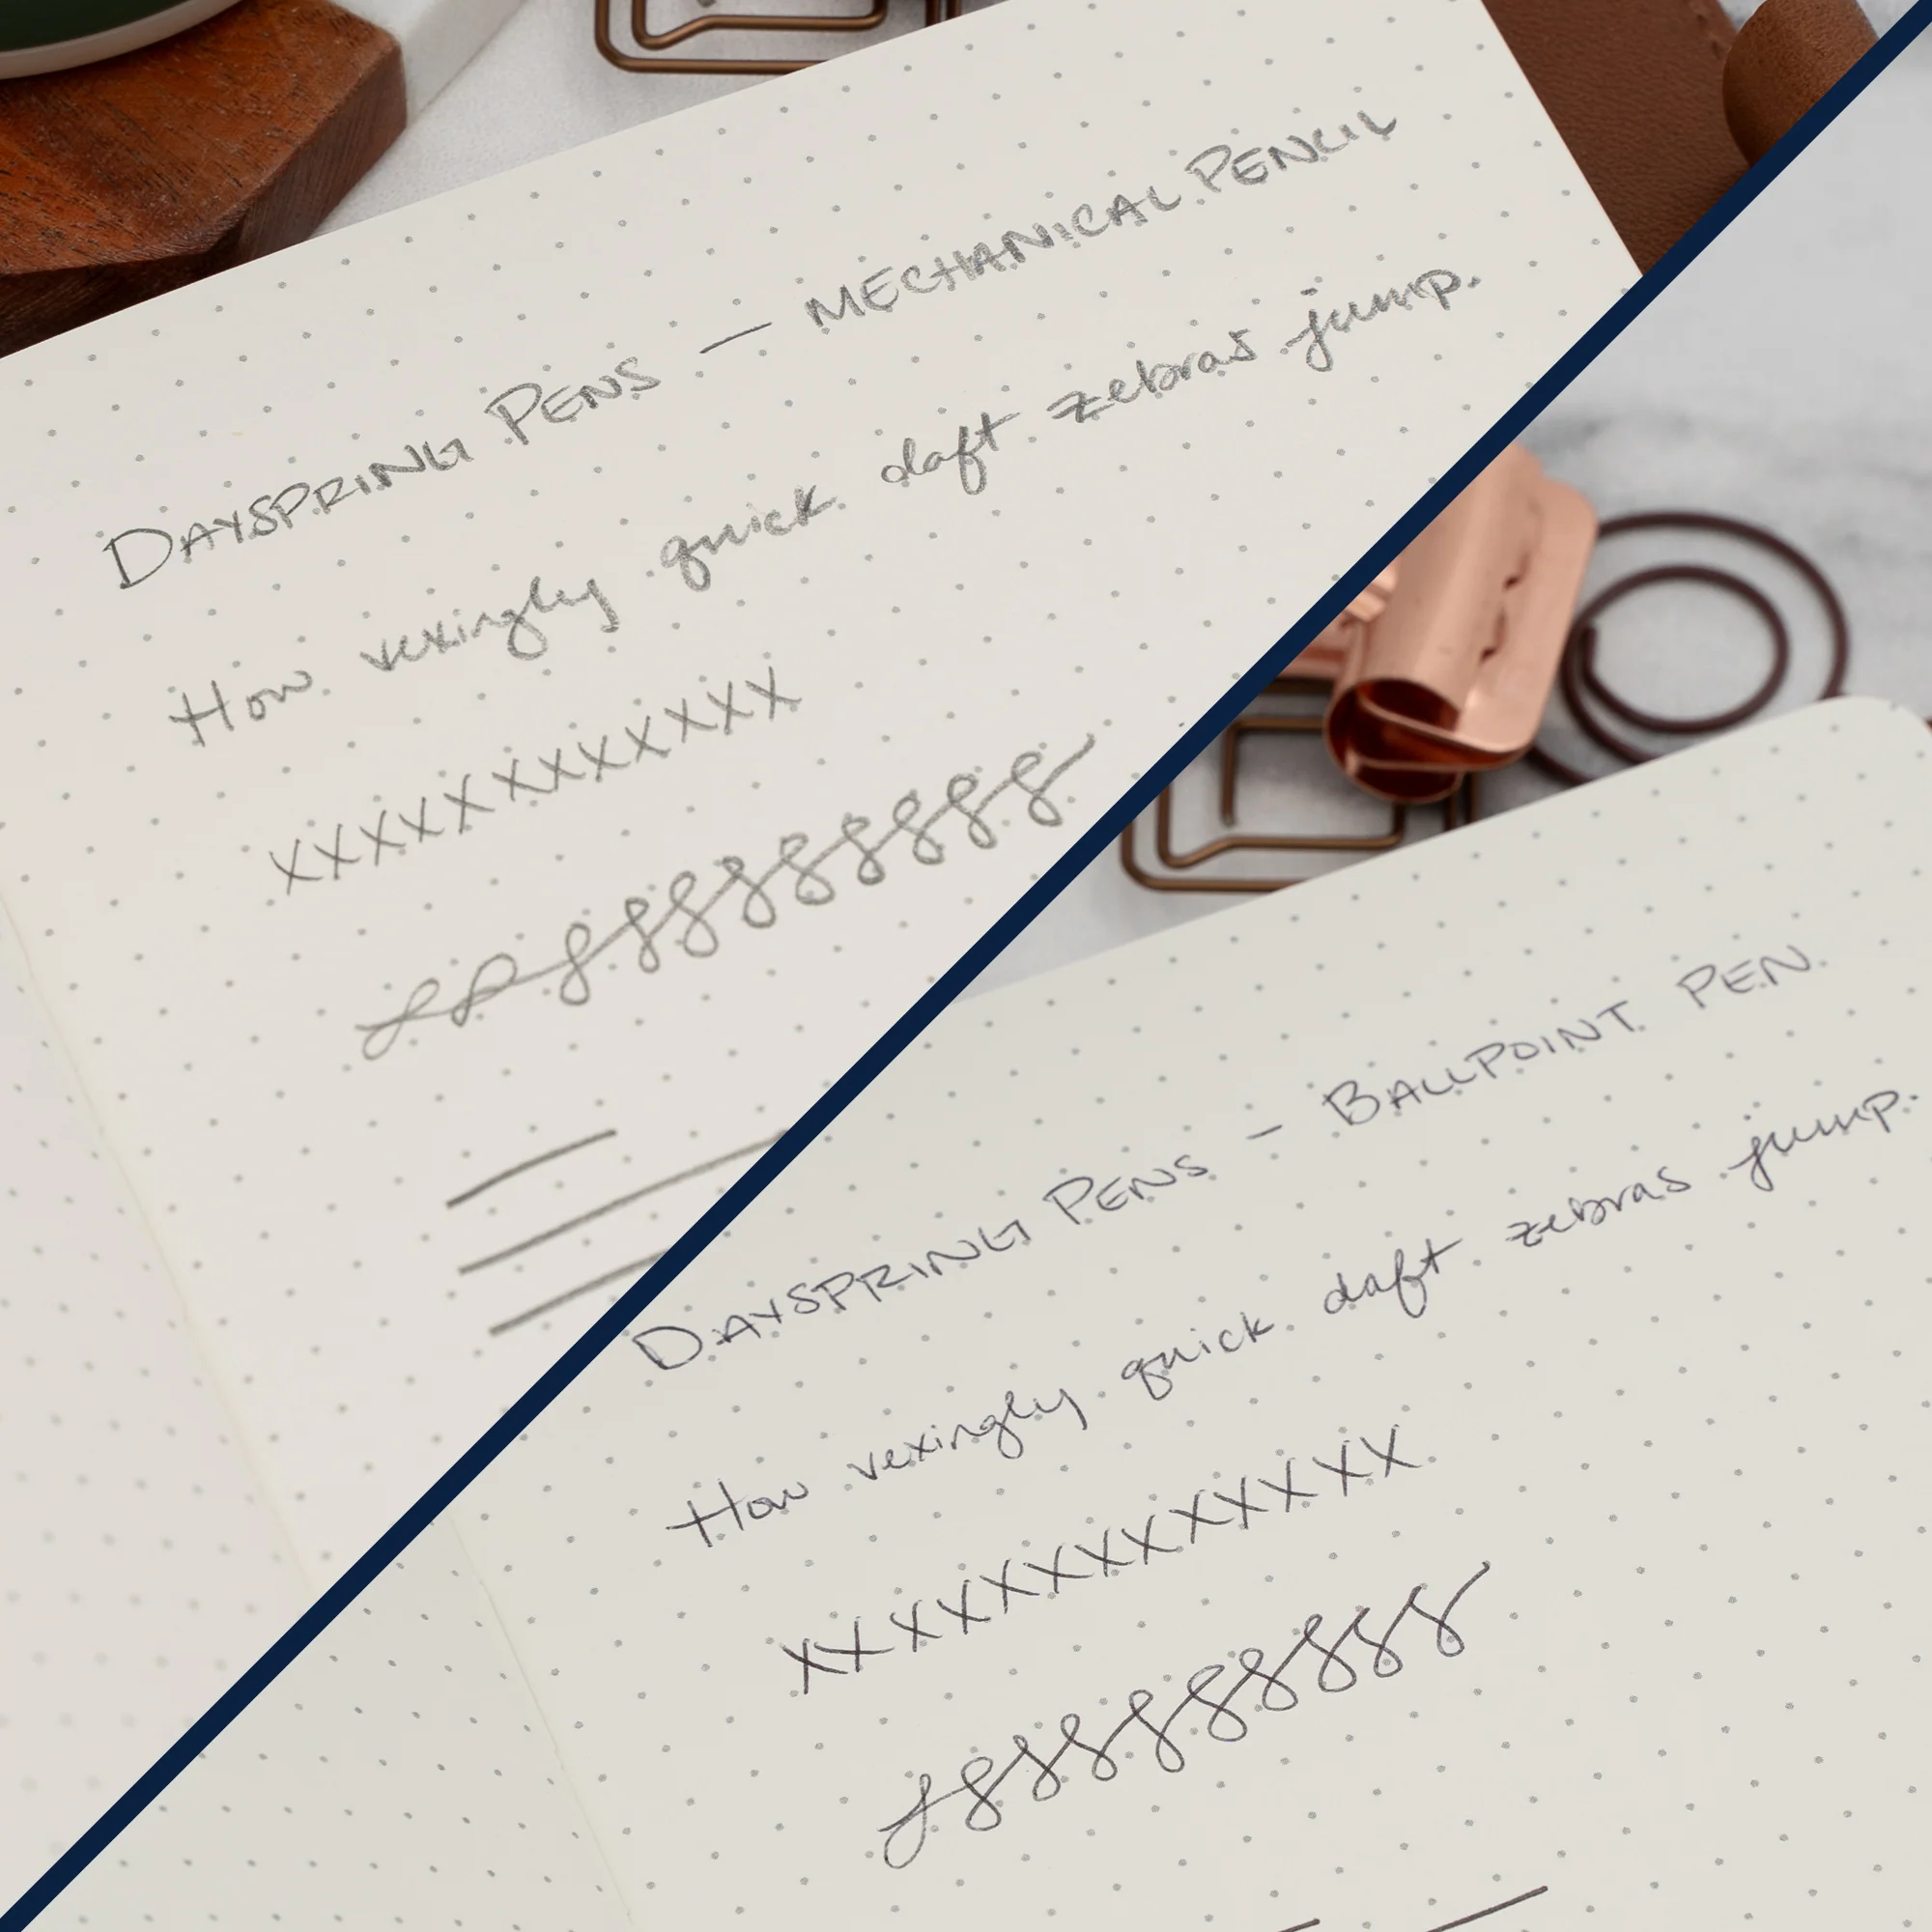 DAYSPRING PENS — MECHANICAL PENCIL
How vexingly quick daft zebras jump.
XXXXXXXXXXXX
DAYSPRING PENS — BALLPOINT PEN
How vexingly quick daft zebras jump.
XXXXXXXXXXXXX